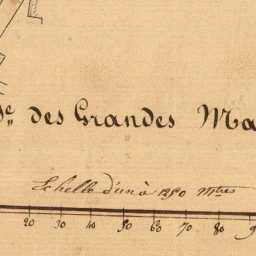 des Grandes Ma
Echelle d'un à 1250 Mtres
20 30 40 50 60 70 80 9